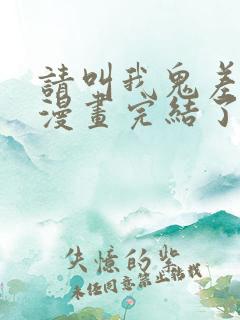 請叫我鬼差
漫畫完結了
失憶的柴
未經同意禁止轉載